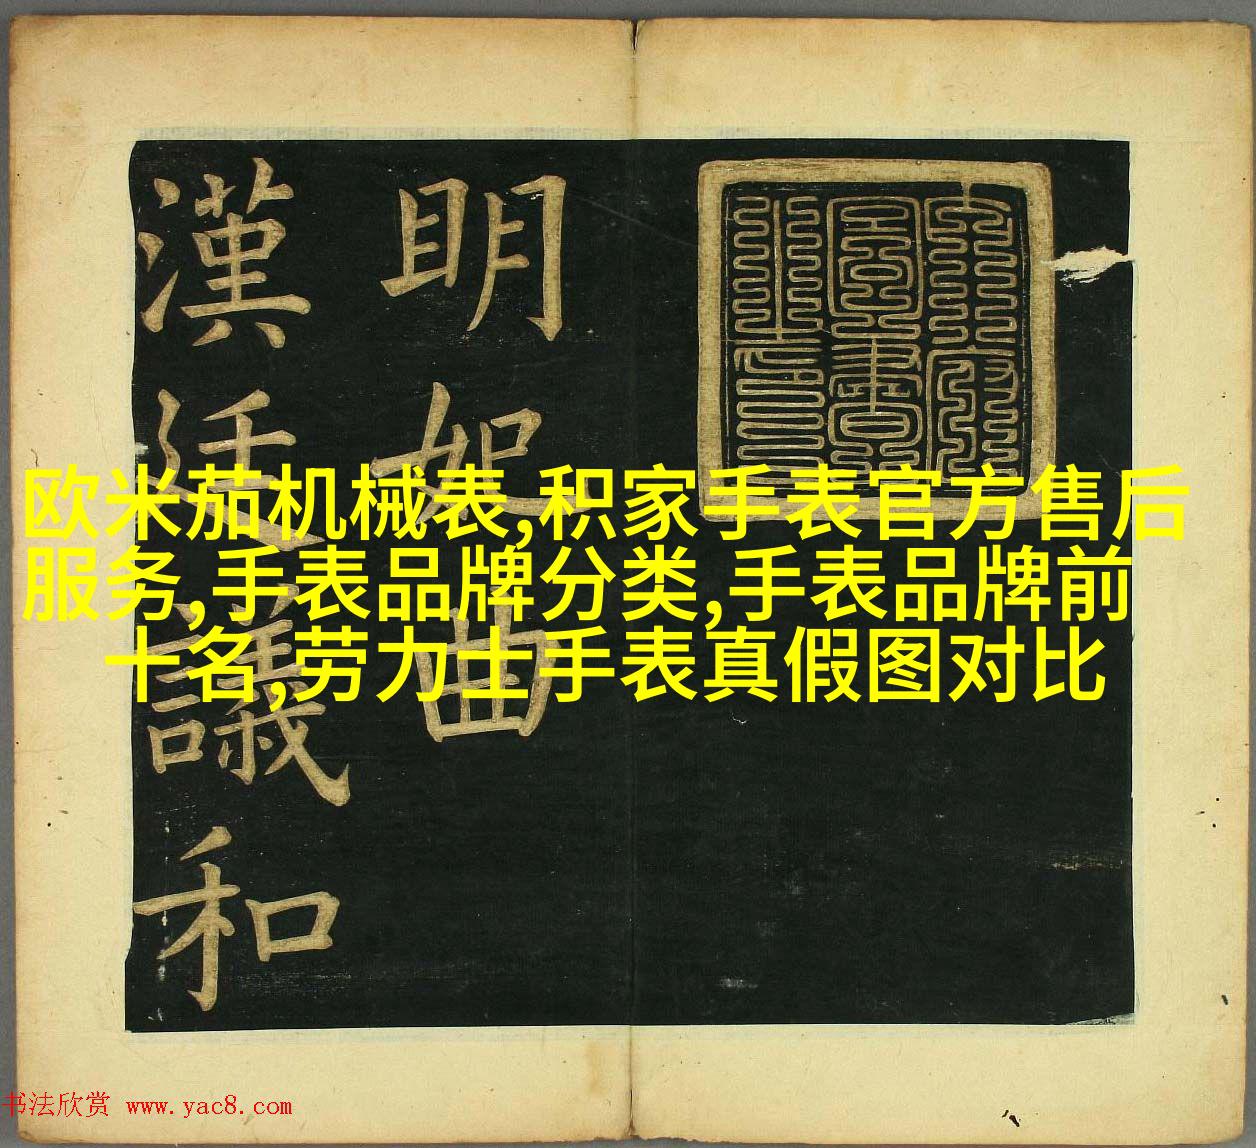 明妃曲
漢廷議和
欧米茄机械表,积家手表官方售后
服务,手表品牌分类,手表品牌前
十名,劳力士手表真假图对比
书法欣赏 www.yac8.com